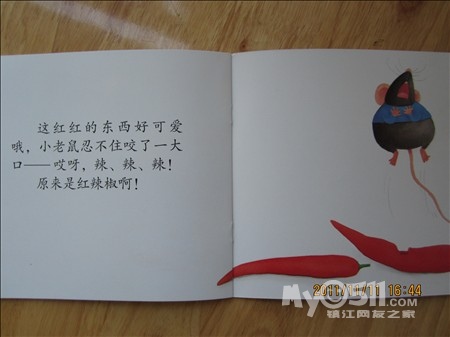 这红红的东西好可爱
哦，小老鼠忍不住咬了一大
口——哎呀，辣、辣、辣！
原来是红辣椒啊！
2011/11/11 16:44
My0511.com
镇江网友之家